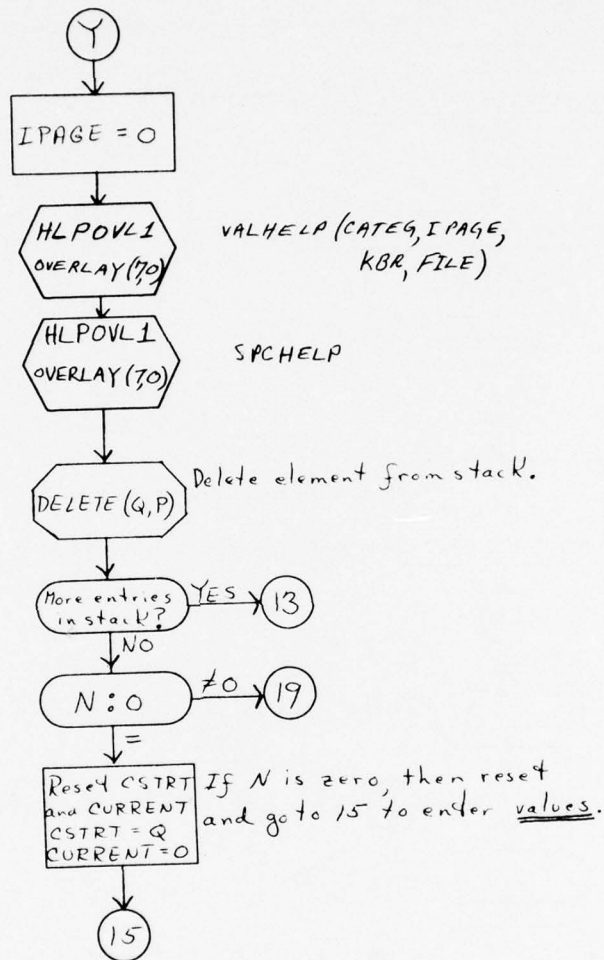 Y
IPAGE = 0
HLPOVL1
OVERLAY(7,0)
VALHELP (CATEG, IPAGE,
KBR, FILE)
HLPOVL1
OVERLAY(7,0)
SPCHELP
DELETE (Q,P)
Delete element from stack.
More entries
in stack?
YES
13
NO
N : 0
≠0
19
=
Reset CSTRT
and CURRENT
CSTRT = Q
CURRENT = 0
If N is zero, then reset
and go to 15 to enter values.
15